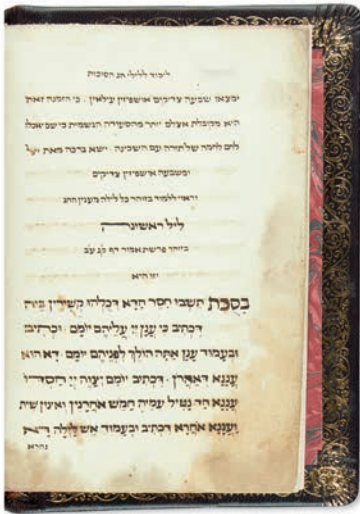 לימוד ללילי חג הסוכות
ימצאו שבעה צדיקים אושפיזין עילאין · כי הזמנה זאת
היא מקובלת אצלם יותר מהסעודה הגשמית כי שם יאכלו
לחם לחמה של תורה עם השכינה · ישא ברכה מאת יי׳
ומשבעה אושפיזין צדיקים
וראוי ללמוד בזוהר כל לילה מענין החג
ליל ראשונה
בזוהר פרשת אמור דף קג ע״ב
וזו היא
בַסֻכֹּת תֵּשְׁבוּ חסר חֲדָא דִּכֻלְּהוּ קְשִׁירִין
דִּכְתִיב כִּי עֲנַן יְיָ עֲלֵיהֶם יוֹמָם · וּכְתִיב
וּבְעַמּוּד עָנָן אַתָּה הוֹלֵךְ לִפְנֵיהֶם יוֹמָם · דָּא הוּא
עֲנָנָא דְּאַהֲרֹן · דִּכְתִיב יוֹמָם יְצַוֶּה יְיָ חַסְדּוֹ
עֲנָנָא חַד נָטִיל עִמֵּיהּ חֲמֵשׁ אָחֳרָנִין וְאִינוּן שִׁית
וַעֲנָנָא אָחֳרָא דִּכְתִיב וּבְעַמּוּד אֵשׁ לַיְלָה
נהרא